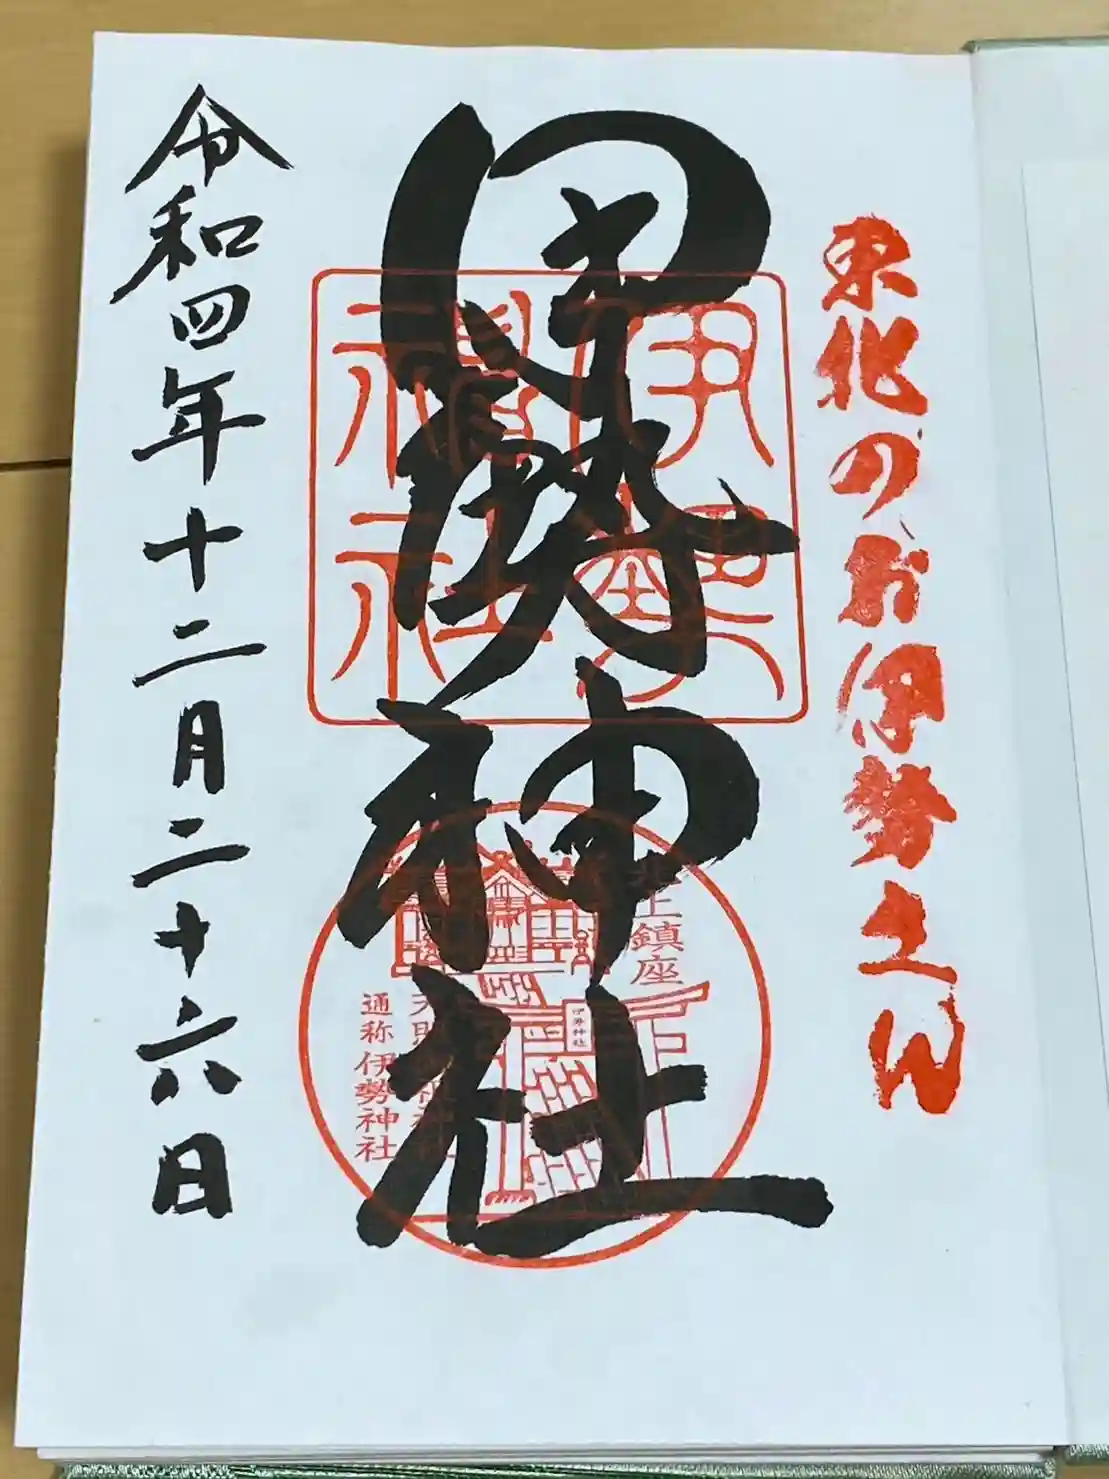 東北のお伊勢さん
伊勢神社
伊勢
神社
鎮座
通称 伊勢神社
伊勢神社
令和四年十二月二十六日